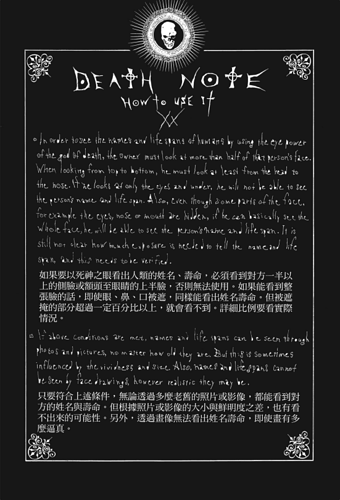 DEATH NOTE
HOW TO USE IT
XX
In order to see the names and life spans of humans by using the eye power
of the god of death, the owner must look at more than half of that person's face.
When looking from top to bottom, he must look at least from the head to
the nose. If he looks at only the eyes and under, he will not be able to see
the person's name and life span. Also, even though some parts of the face,
for example the eyes, nose or mouth are hidden, if he can basically see the
whole face, he will be able to see the person's name and life span. It is
still not clear how much exposure is needed to tell the name and life
span, and this needs to be verified.
如果要以死神之眼看出人類的姓名、壽命，必須看到對方一半以
上的側臉或額頭至眼睛的上半臉，否則無法使用。如果能看到整
張臉的話，即使眼、鼻、口被遮，同樣能看出姓名壽命，但被遮
掩的部分超過一定百分比以上，就會看不到。詳細比例要看實際
情況。
If above conditions are met, names and life spans can be seen through
photos and pictures, no matter how old they are. But this is sometimes
influenced by the vividness and size. Also, names and life spans cannot
be seen by face drawings, however realistic they may be.
只要符合上述條件，無論透過多麼老舊的照片或影像，都能看到對
方的姓名與壽命，但根據照片或影像的大小與鮮明度之差，也有看
不出來的可能性。另外，透過畫像無法看出姓名壽命，即使畫有多
麼逼真。